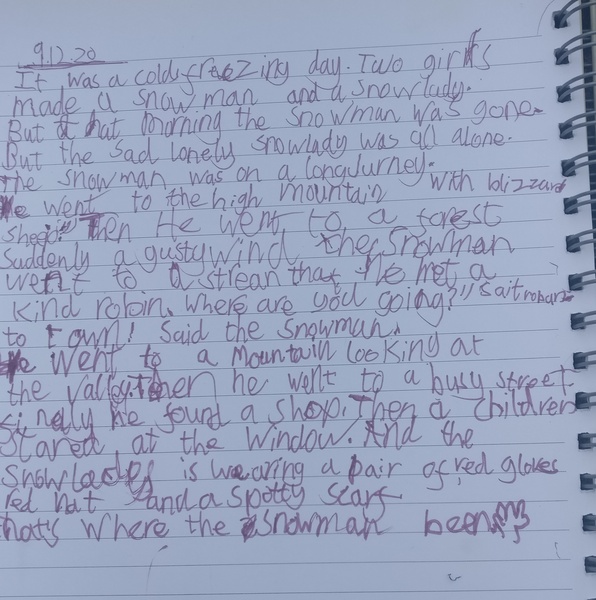 9.12.20
It was a cold freezing day. Two girls
made a snow man and a snowlady.
But that morning the snowman was gone.
But the sad lonely snowlady was all alone.
the snowman was on a longlurney.
He went to the high mountain with blizzard
Then He went to a forest
Suddenly a gusty wind the snowman
went to a strean that he met a
kind robin. Where are you going?"
to town! Said the snowman.
He went to a mountain looking at
the valley. then he went to a busy street
finely he found a shop. Then a children
Stared at the window. And the
Snowlady is wearing a pair of red gloves
red hat and a spotty scarf
that's where the snowman been